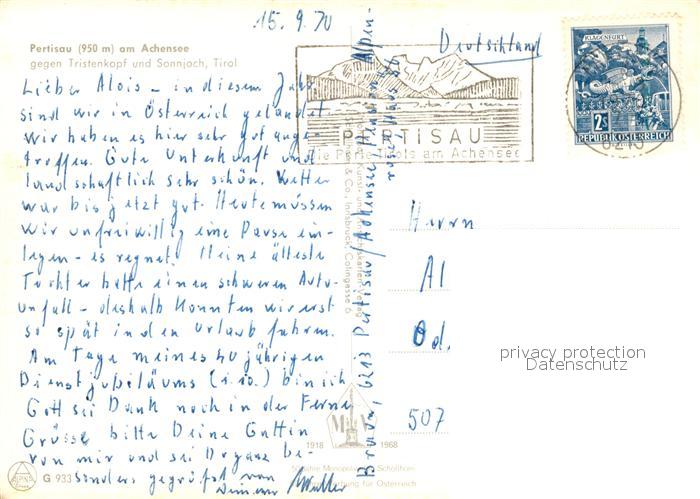 15.9.70
Pertisau (950 m) am Achensee
gegen Tristenkopf und Sonnjoch, Tirol
Lieber Alois - in diesem Jahr
sind wir in Österreich gelandet.
Wir haben es hier sehr gut ange-
troffen. Gute Unterkunft und
landschaftlich sehr schön. Wetter
war bis jetzt gut. Heute müssen
wir unfreiwillig eine Pause ein-
legen - es regnet. Meine älteste
Tochter hatte einen schweren Auto-
unfall - deshalb konnten wir erst
so spät in den Urlaub fahren.
Am Tage meines 40 jährigen
Dienstjubiläums (1.10.) bin ich
Gott sei Dank noch in der Ferne
Grüsse bitte Deine Gattin
von mir und sei Du ganz be-
sonders gegrüßt von
Deinem
G 933
ALPINE
PERTISAU
die Perle Tirols am Achensee
Deutschland
KLAGENFURT
2S
REPUBLIK ÖSTERREICH
Kunst- und Ansichtskarten-Verlag
& Co., Innsbruck, Colingasse 6
6213 Pertisau/Achensee, Pension Alpen-
Herrn
Al
Od.
507
privacy protection
Datenschutz
1918 1968
50 Jahre
für Österreich